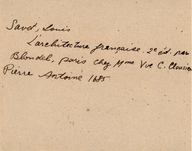 Savot, Louis
L'architecture française. 2e éd. par
Blondel, paris chez Mme Vve C. Clousier
Pierre Antoine 1685